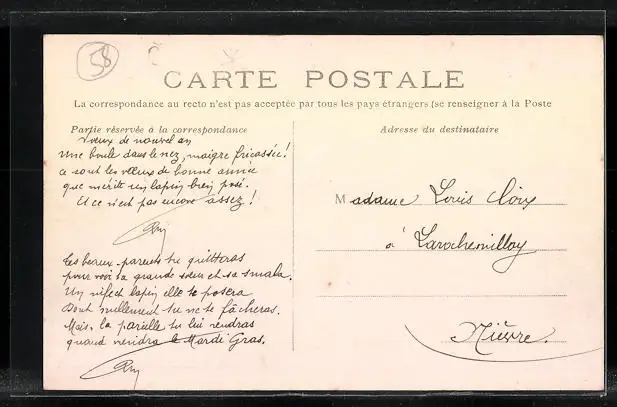 58
CARTE POSTALE
La correspondance au recto n'est pas acceptée par tous les pays étrangers (se renseigner à la Poste
Partie réservée à la correspondance
Adresse du destinataire
Vœux de nouvel an
Une boule dans le nez, maigre fricassée!
Ce sont les vœux de bonne année
que mérite un lapin bien posé.
Et ce n'est pas encore assez!
Tes beaux-parents tu quitteras
pour voir ta grande sœur et sa smala.
Un infect lapin elle te posera
Dont nullement tu ne te fâcheras.
Mais la pareille tu lui rendras
quand viendra le Mardi Gras.
Madame Louis Cloix
à Larochemillay
Nièvre.